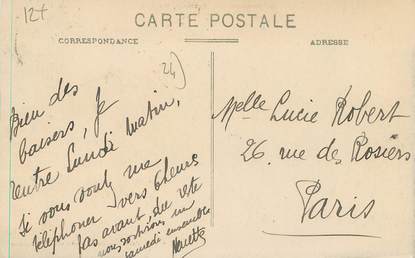 12+
CARTE POSTALE
CORRESPONDANCE
ADRESSE
24
Bien des
baisers, je
rentre Lundi Matin,
Si vous voulez me
téléphoner vers 6 heures
pas avant,
nous
samedi ensemble
Melle Lucie Robert
26 rue des Rosiers
Paris